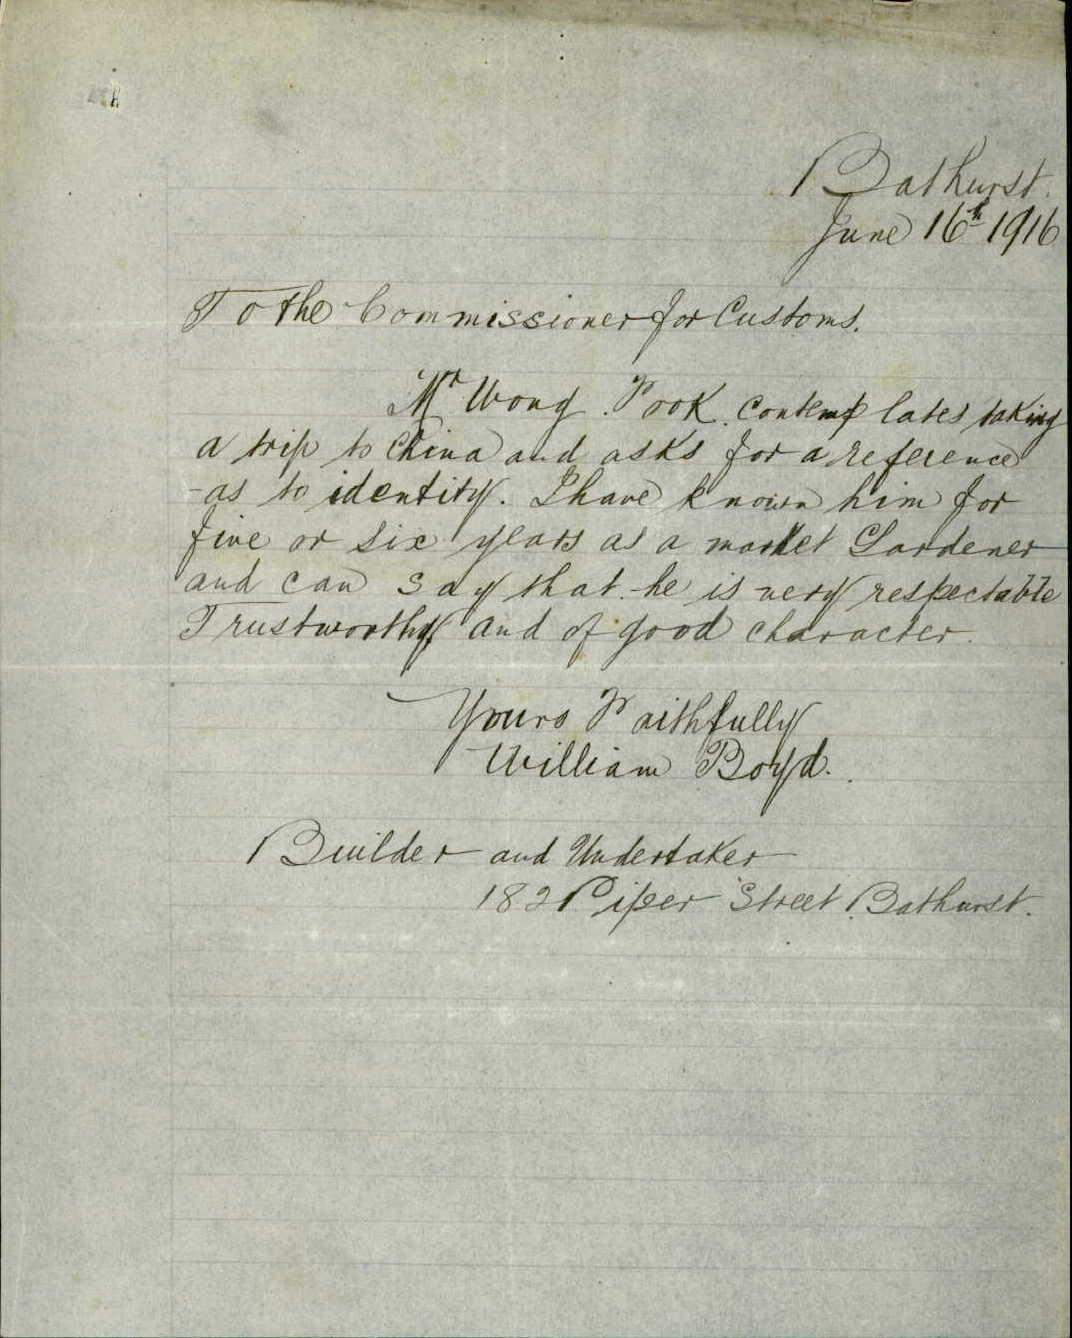 Bathurst.
June 16th 1916
To the Commissioner for Customs.
Mr Wong Fook contemplates taking
a trip to China and asks for a reference
as to identity. I have known him for
five or six years as a market Gardener
and can say that he is very respectable
Trustworthy and of good character.
Yours Faithfully
William Boyd.
Builder and Undertaker
182 Piper Street Bathurst.